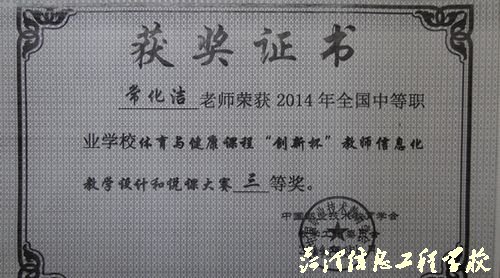 获奖证书
常化洁 老师荣获 2014 年全国中等职
业学校体育与健康课程“创新杯”教师信息化
教学设计和说课大赛 三 等奖。
中国职业技术教育学会
信息工程学校